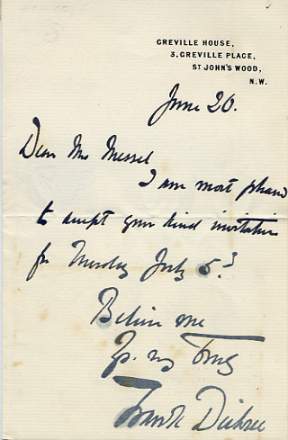 GREVILLE HOUSE,
3, GREVILLE PLACE,
ST JOHN'S WOOD,
N.W.
June 20.
Dear Mrs Messel
I am most pleased
to accept your kind invitation
for July 5
Believe me
Yrs vy Truly
Frank Dicksee